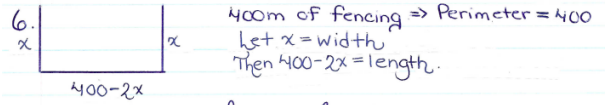 6.
x
x
400-2x
400m of fencing => Perimeter = 400
Let x = width
Then 400-2x = length.